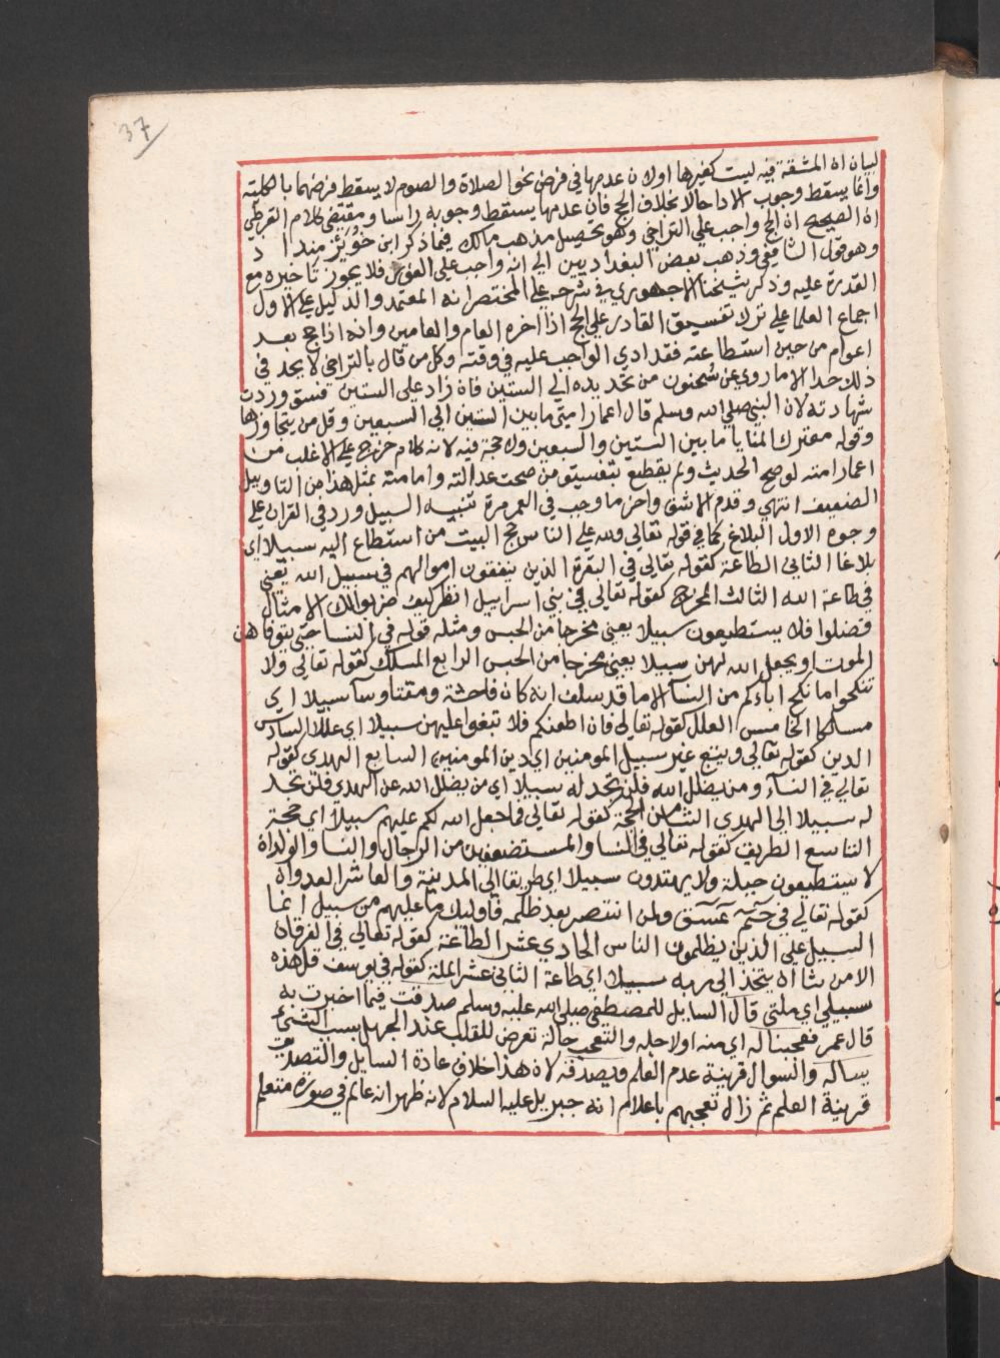 37
لبيان ان المشقة فيه ليست كغيرها اولان عدمها في فرض نحو الصلاة والصوم لا يسقط فرضهما بالكلية
وانما يسقط وجوب الاداحالا بخلاف الحج فان عدمها يسقط وجوبه راسا ومقتضى كلام القرطبي
ان الصحيح ان الحج واجب علي التراخي وهو تحصيل مذهب مالك فيما ذكر ابن خويز منداد
وهو قول الشافعي وذهب بعض البغداديين الي انه واجب علي الفور فلا يجوز تاخيره مع
القدرة عليه وذكر شيخنا الاجهوري في شرحه علي المختصر انه المعتمد والدليل علي الاول
اجماع العلما علي ترك تفسيق القادر علي الحج اذا اخره العام والعامين وانه اذا حج بعد
اعوام من حين استطاعته فقد ادي الواجب عليه في وقته وكل من قال بالتراخي لا يحد في
ذلك حدا الا ما روي عن سحنون من تحديده الي الستين فان زاد علي الستين فسق وردت
شهادته لان النبي صلي الله وسلم قال اعمار امتي ما بين الستين الي السبعين وقل من يتجاوزها
وقوله معترك المنايا ما بين الستين والسبعين ولا حجة فيه لانه كلام خرج علي الاغلب من
اعمار امته لو صح الحديث ولم يقطع بتفسيق من صحت عدالته وامامته بمثل هذا من التاويل
الضعيف انتهي وقدم الاشق واخر ما وجب في العمر مرة تنبيه السبيل ورد في القران علي
وجوه الاول البلاغ كما في قوله تعالي ولله علي الناس حج البيت من استطاع اليه سبيلا اي
بلاغا الثاني الطاعة كقوله تعالي في البقرة الذين ينفقون اموالهم في سبيل الله يعني
في طاعة الله الثالث المخرج كقوله تعالي في بني اسراييل انظر كيف ضربوا لك الامثال
فضلوا فلا يستطيعون سبيلا يعني مخرجا من الحبس ومثله قوله في النسا حتي يتوفاهن
الموت او يجعل الله لهن سبيلا يعني مخرجا من الحبس الرابع المسلك كقوله تعالي ولا
تنكحوا ما نكح اباؤكم من النسآ الا ما قد سلف انه كان فاحشة ومقتا وسآ سبيلا اي
مسلكا الخامس العلل كقوله تعالي فان اطعنكم فلا تبغوا عليهن سبيلا اي عللا السادس
الدين كقوله تعالي ويتبع غير سبيل المومنين اي دين المومنين السابع الهدي كقوله
تعالي في النسآء ومن يضلل الله فلن تجد له سبيلا اي من يضلل الله عن الهدي فلن تجد
له سبيلا الي الهدي الثامن الحجة كقوله تعالي فما جعل الله لكم عليهم سبيلا اي حجة
التاسع الطريق كقوله تعالي في النسا والمستضعفين من الرجال والنسا والولدان
لا يستطيعون حيلة ولا يهتدون سبيلا اي طريقا الي المدينة والعاشر العدوان
كقوله تعالي في حم عسق ولمن انتصر بعد ظلمه فاوليك ما عليهم من سبيل انما
السبيل علي الذين يظلمون الناس الحادي عشر الطاعة كقوله تعالي في الفرقان
الا من شا ان يتخذ الي ربه سبيلا اي طاعة الثاني عشر الملة كقوله في يوسف قل هذه
سبيلي اي ملتي قال السايل للمصطفي صلي الله عليه وسلم صدقت فيما اخبرت به
قال عمر فعجبنا له اي منه اولاجله والتعجب حالة تعرض للقلب عند الجهل بسبب الشئ
يساله والسوال قرينة عدم العلم ويصدقه لان هذا خلاف عادة السايل والتصديق
قرينة العلم ثم زال تعجبهم باعلام انه جبريل عليه السلام لانه ظهر انه عالم في صورة متعلم